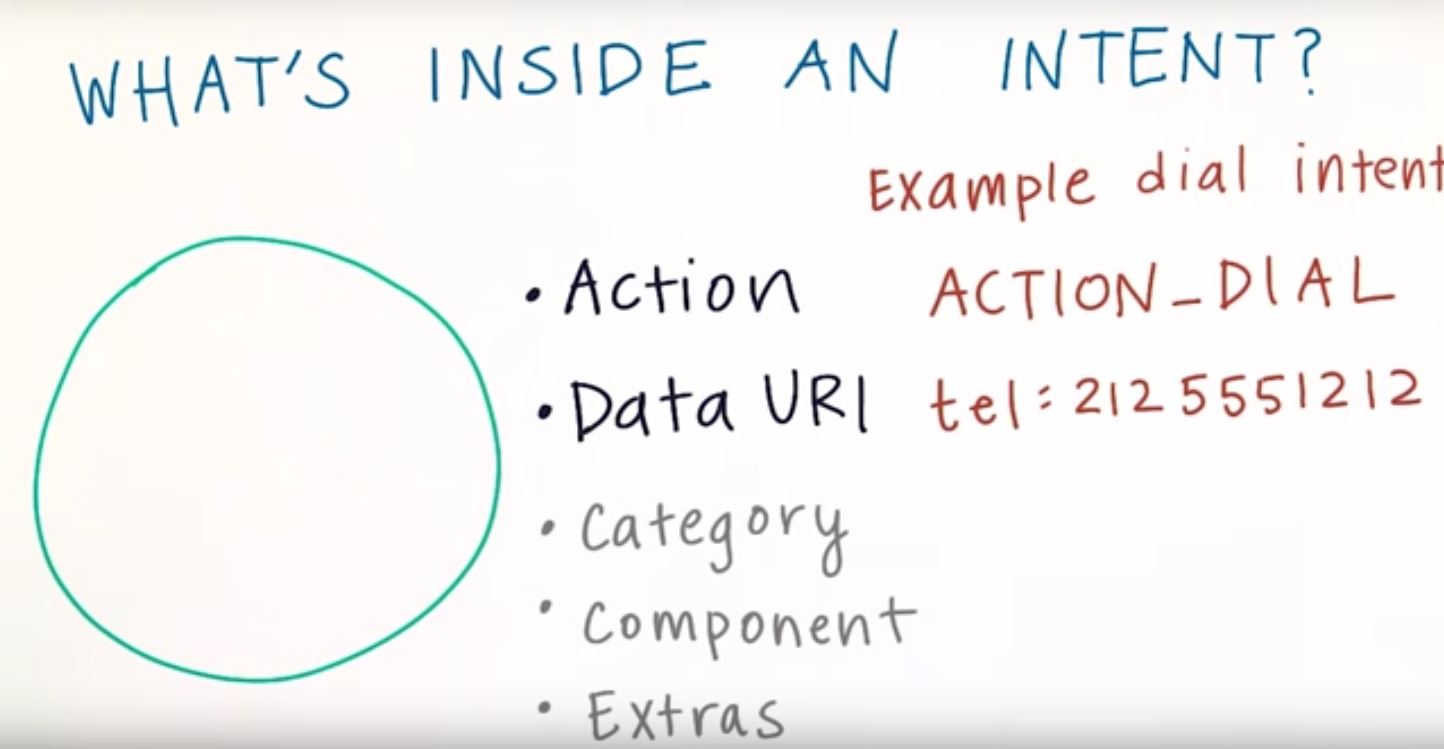 WHAT'S INSIDE AN INTENT?
Example dial intent
• Action ACTION_DIAL
• Data URI tel:2125551212
• Category
• Component
• Extras